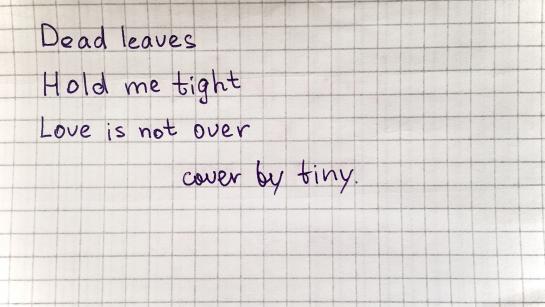 Dead leaves
Hold me tight
Love is not over
cover by tiny.